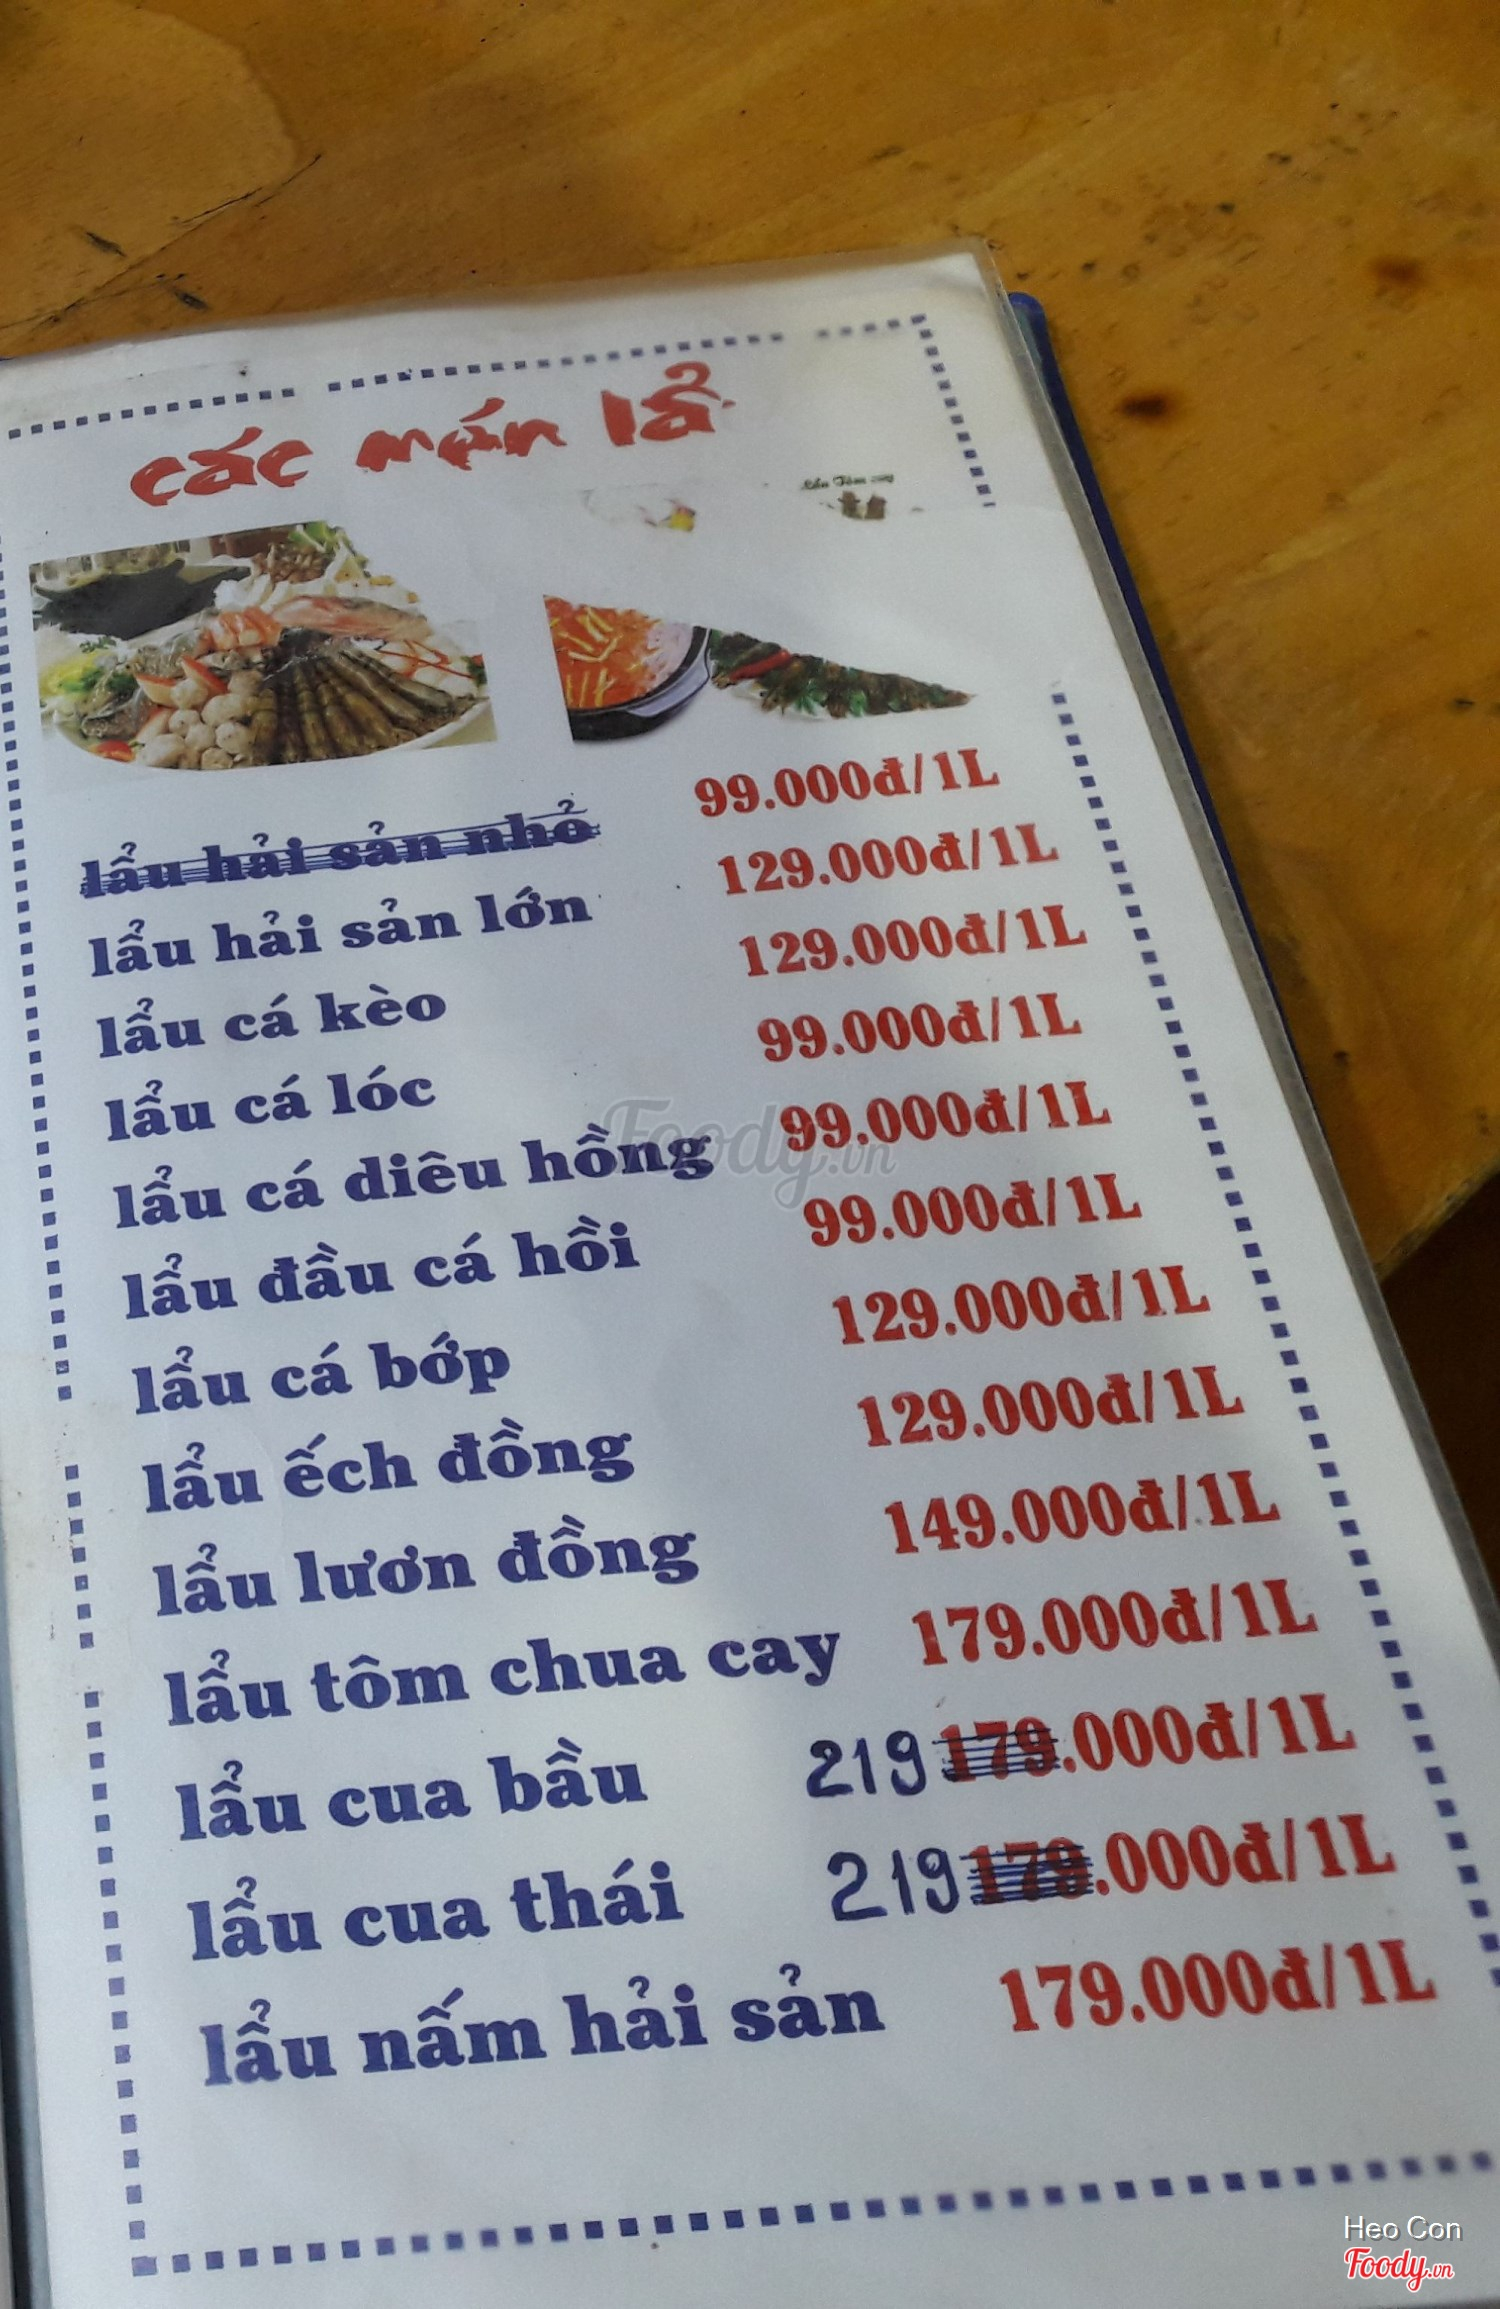 các món lẩ
Lẩu Tôm
lẩu hải sản nhỏ 99.000đ/1L
lẩu hải sản lớn 129.000đ/1L
lẩu cá kèo 129.000đ/1L
lẩu cá lóc 99.000đ/1L
lẩu cá diêu hồng 99.000đ/1L
lẩu đầu cá hồi 99.000đ/1L
lẩu cá bớp 129.000đ/1L
lẩu ếch đồng 129.000đ/1L
lẩu lươn đồng 149.000đ/1L
lẩu tôm chua cay 179.000đ/1L
lẩu cua bầu 219 179.000đ/1L
lẩu cua thái 219 179.000đ/1L
lẩu nấm hải sản 179.000đ/1L
Foody.vn
Heo Con
Foody.vn